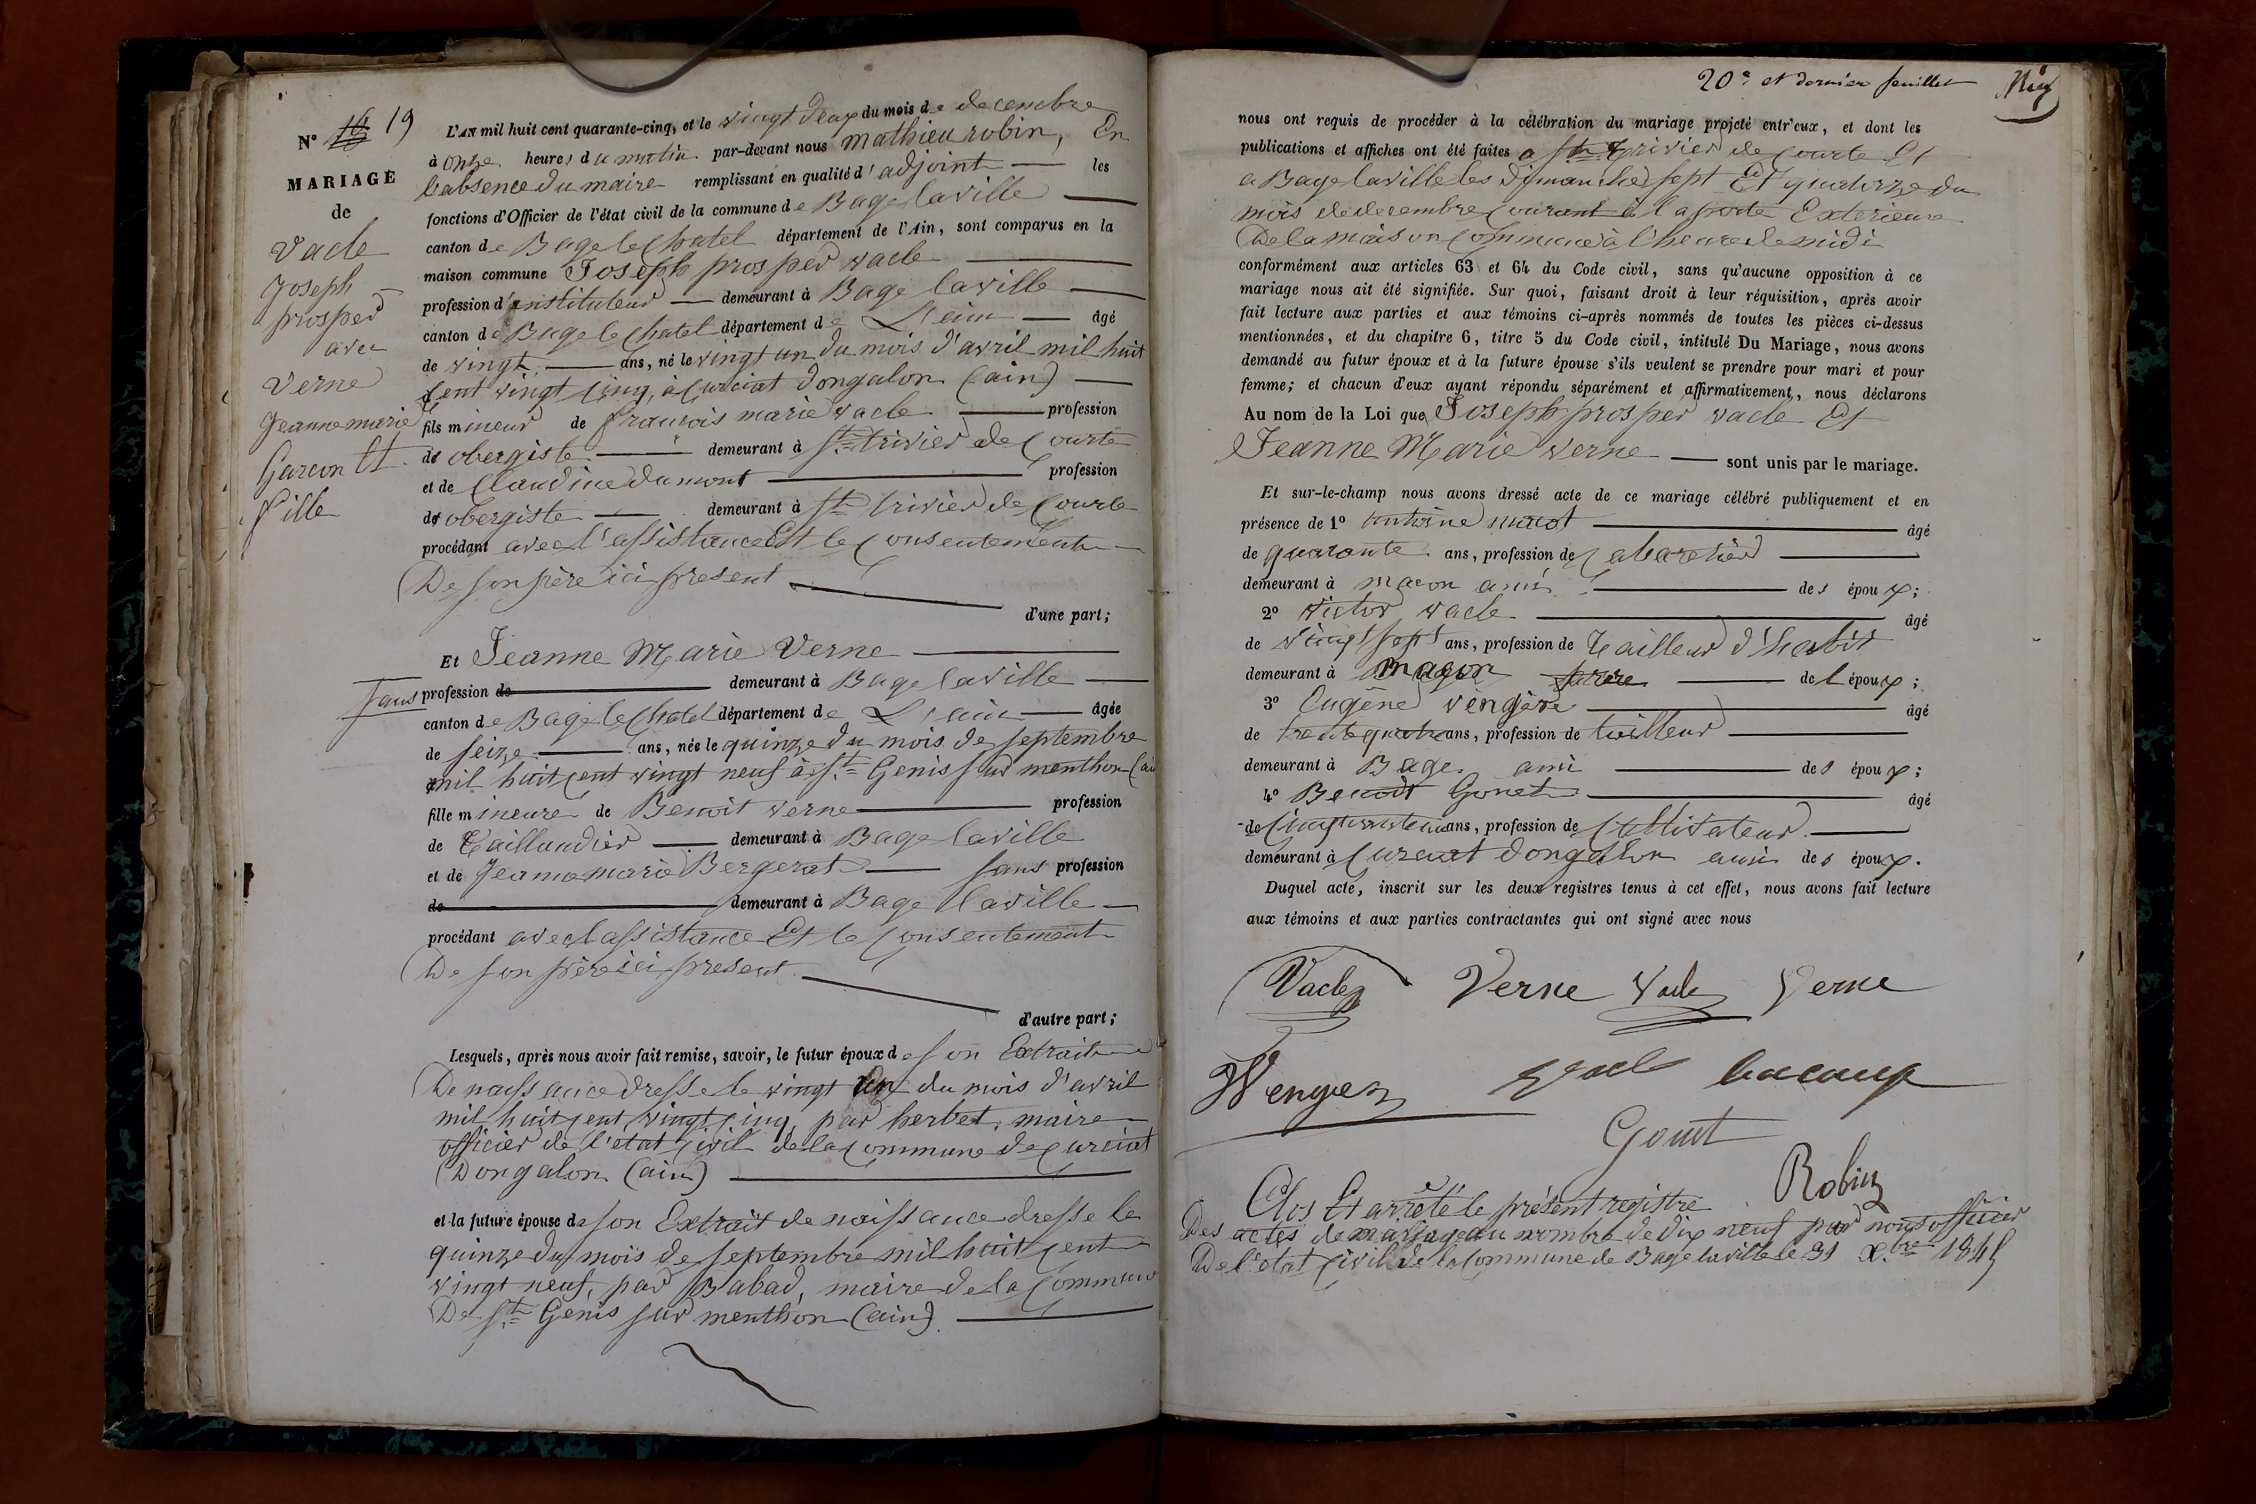 N° 16 19
MARIAGE
de
Vacle
Joseph
prosper
avec
Verne
Jeanne marie
Garcon Et
fille
L'AN mil huit cent quarante-cinq, et le vingt deux du mois de decembre
à onze heures du matin par-devant nous mathieu robin, En
l'absence du maire remplissant en qualité d'adjoint les
fonctions d'Officier de l'état civil de la commune de Bage laville
canton de Bage le Chatel département de l'Ain, sont comparus en la
maison commune Joseph prosper vacle
profession d'instituteur demeurant à Bage laville
canton de Bage le Chatel département de L'ain âgé
de vingt ans, né le vingt un du mois d'avril mil huit
cent vingt cinq, à Curciat dongalon (ain)
fils mineur de francois marie vacle profession
de obergiste demeurant à St trivier de Courte
et de Claudine dumont profession
de obergiste demeurant à St trivier de Courte
procédant avec l'assistance Et le Consentement
De son père ici present
d'une part;
Et Jeanne Marie Verne
sans profession de demeurant à Bage laville
canton de Bage le Chatel département de L'ain âgée
de seize ans, née le quinze du mois de septembre
mil huit cent vingt neuf à St Genis sur menthon (ain
fille mineure de Benoit verne profession
de Taillandier demeurant à Bage laville
et de Jeanne marie Bergerat sans profession
de demeurant à Bage laville
procédant avec l'assistance Et le Consentement
De son père ici present
d'autre part;
Lesquels, après nous avoir fait remise, savoir, le futur époux de son Extrait
De naissance dresse le vingt un du mois d'avril
mil huit cent vingt cinq, par herbet, maire
officier de l'etat civil de la commune de Curciat
Dongalon (ain)
et la future épouse de son Extrait de naissance dresse le
quinze du mois de septembre mil huit cent
vingt neuf, par Babad, maire de la Commune
De St Genis sur menthon (ain)
20e et dernier feuillet
nous ont requis de procéder à la célébration du mariage projeté entr'eux, et dont les
publications et affiches ont été faites a St trivier de Courte Et
a Bage laville les dimanches sept Et quatorze du
mois de decembre Courant à la porte Exterieure
De la maison Commune à l'heure de midi
conformément aux articles 63 et 64 du Code civil, sans qu'aucune opposition à ce
mariage nous ait été signifiée. Sur quoi, faisant droit à leur réquisition, après avoir
fait lecture aux parties et aux témoins ci-après nommés de toutes les pièces ci-dessus
mentionnées, et du chapitre 6, titre 5 du Code civil, intitulé Du Mariage, nous avons
demandé au futur époux et à la future épouse s'ils veulent se prendre pour mari et pour
femme; et chacun d'eux ayant répondu séparément et affirmativement, nous déclarons
Au nom de la Loi que Joseph prosper vacle Et
Jeanne Marie verne sont unis par le mariage.
Et sur-le-champ nous avons dressé acte de ce mariage célébré publiquement et en
présence de 1° Antoine âgé
de quarante ans, profession de Cabaretier
demeurant à macon ami des époux;
2° Victor vacle âgé
de vingt sept ans, profession de tailleur d'habit
demeurant à macon frere de l époux;
3° Eugène vengère âgé
de trente quatre ans, profession de tailleur
demeurant à Bage ami des époux;
4° Benoit Gonet âgé
de ans, profession de Cultivateur
demeurant à Curciat dongalon ami des époux.
Duquel acte, inscrit sur les deux registres tenus à cet effet, nous avons fait lecture
aux témoins et aux parties contractantes qui ont signé avec nous
Vacle Verne Vacle Verne
Gonet
Robin
Clos Et arrêté le présent registre
Des actes de mariage au nombre de dix neuf par nous officier
De l'etat civil de la Commune de Bage laville le 31 Xbre 1845